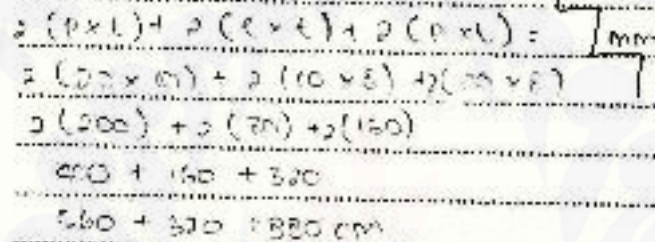 2 (p x l) + 2 (l x t) + 2 (p x t) = mm
2 (20 x 10) + 2 (10 x 8) + 2(20 x 8)
2 (200) + 2 (80) + 2(160)
400 + 160 + 320
560 + 320 = 880 cm